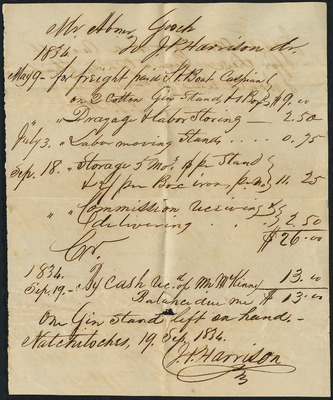 Mr Abner Gooch
To J. P. Harrison dr.
1834
May 9 - for freight paid St Boat Caspian
on 2 Cotton Gin Stands & 1 Box } $9.00
" " Drayage & labor Storing — 2.50
July 3. " Labor moving Stands . . . 0.75
Sep. 18. " Storage 5 Mos. pr Stand
& pr Box iron, } 11.25
" " Commission receiving &
delivering . . . . } 2.50
$26.00
Cr.
1834.
Sep. 19. - By Cash ac. of Mr McKinny 13.00
Balance due me $13.00
One Gin Stand left on hand. -
Natchitoches, 19 Sep. 1834.
J. P. Harrison